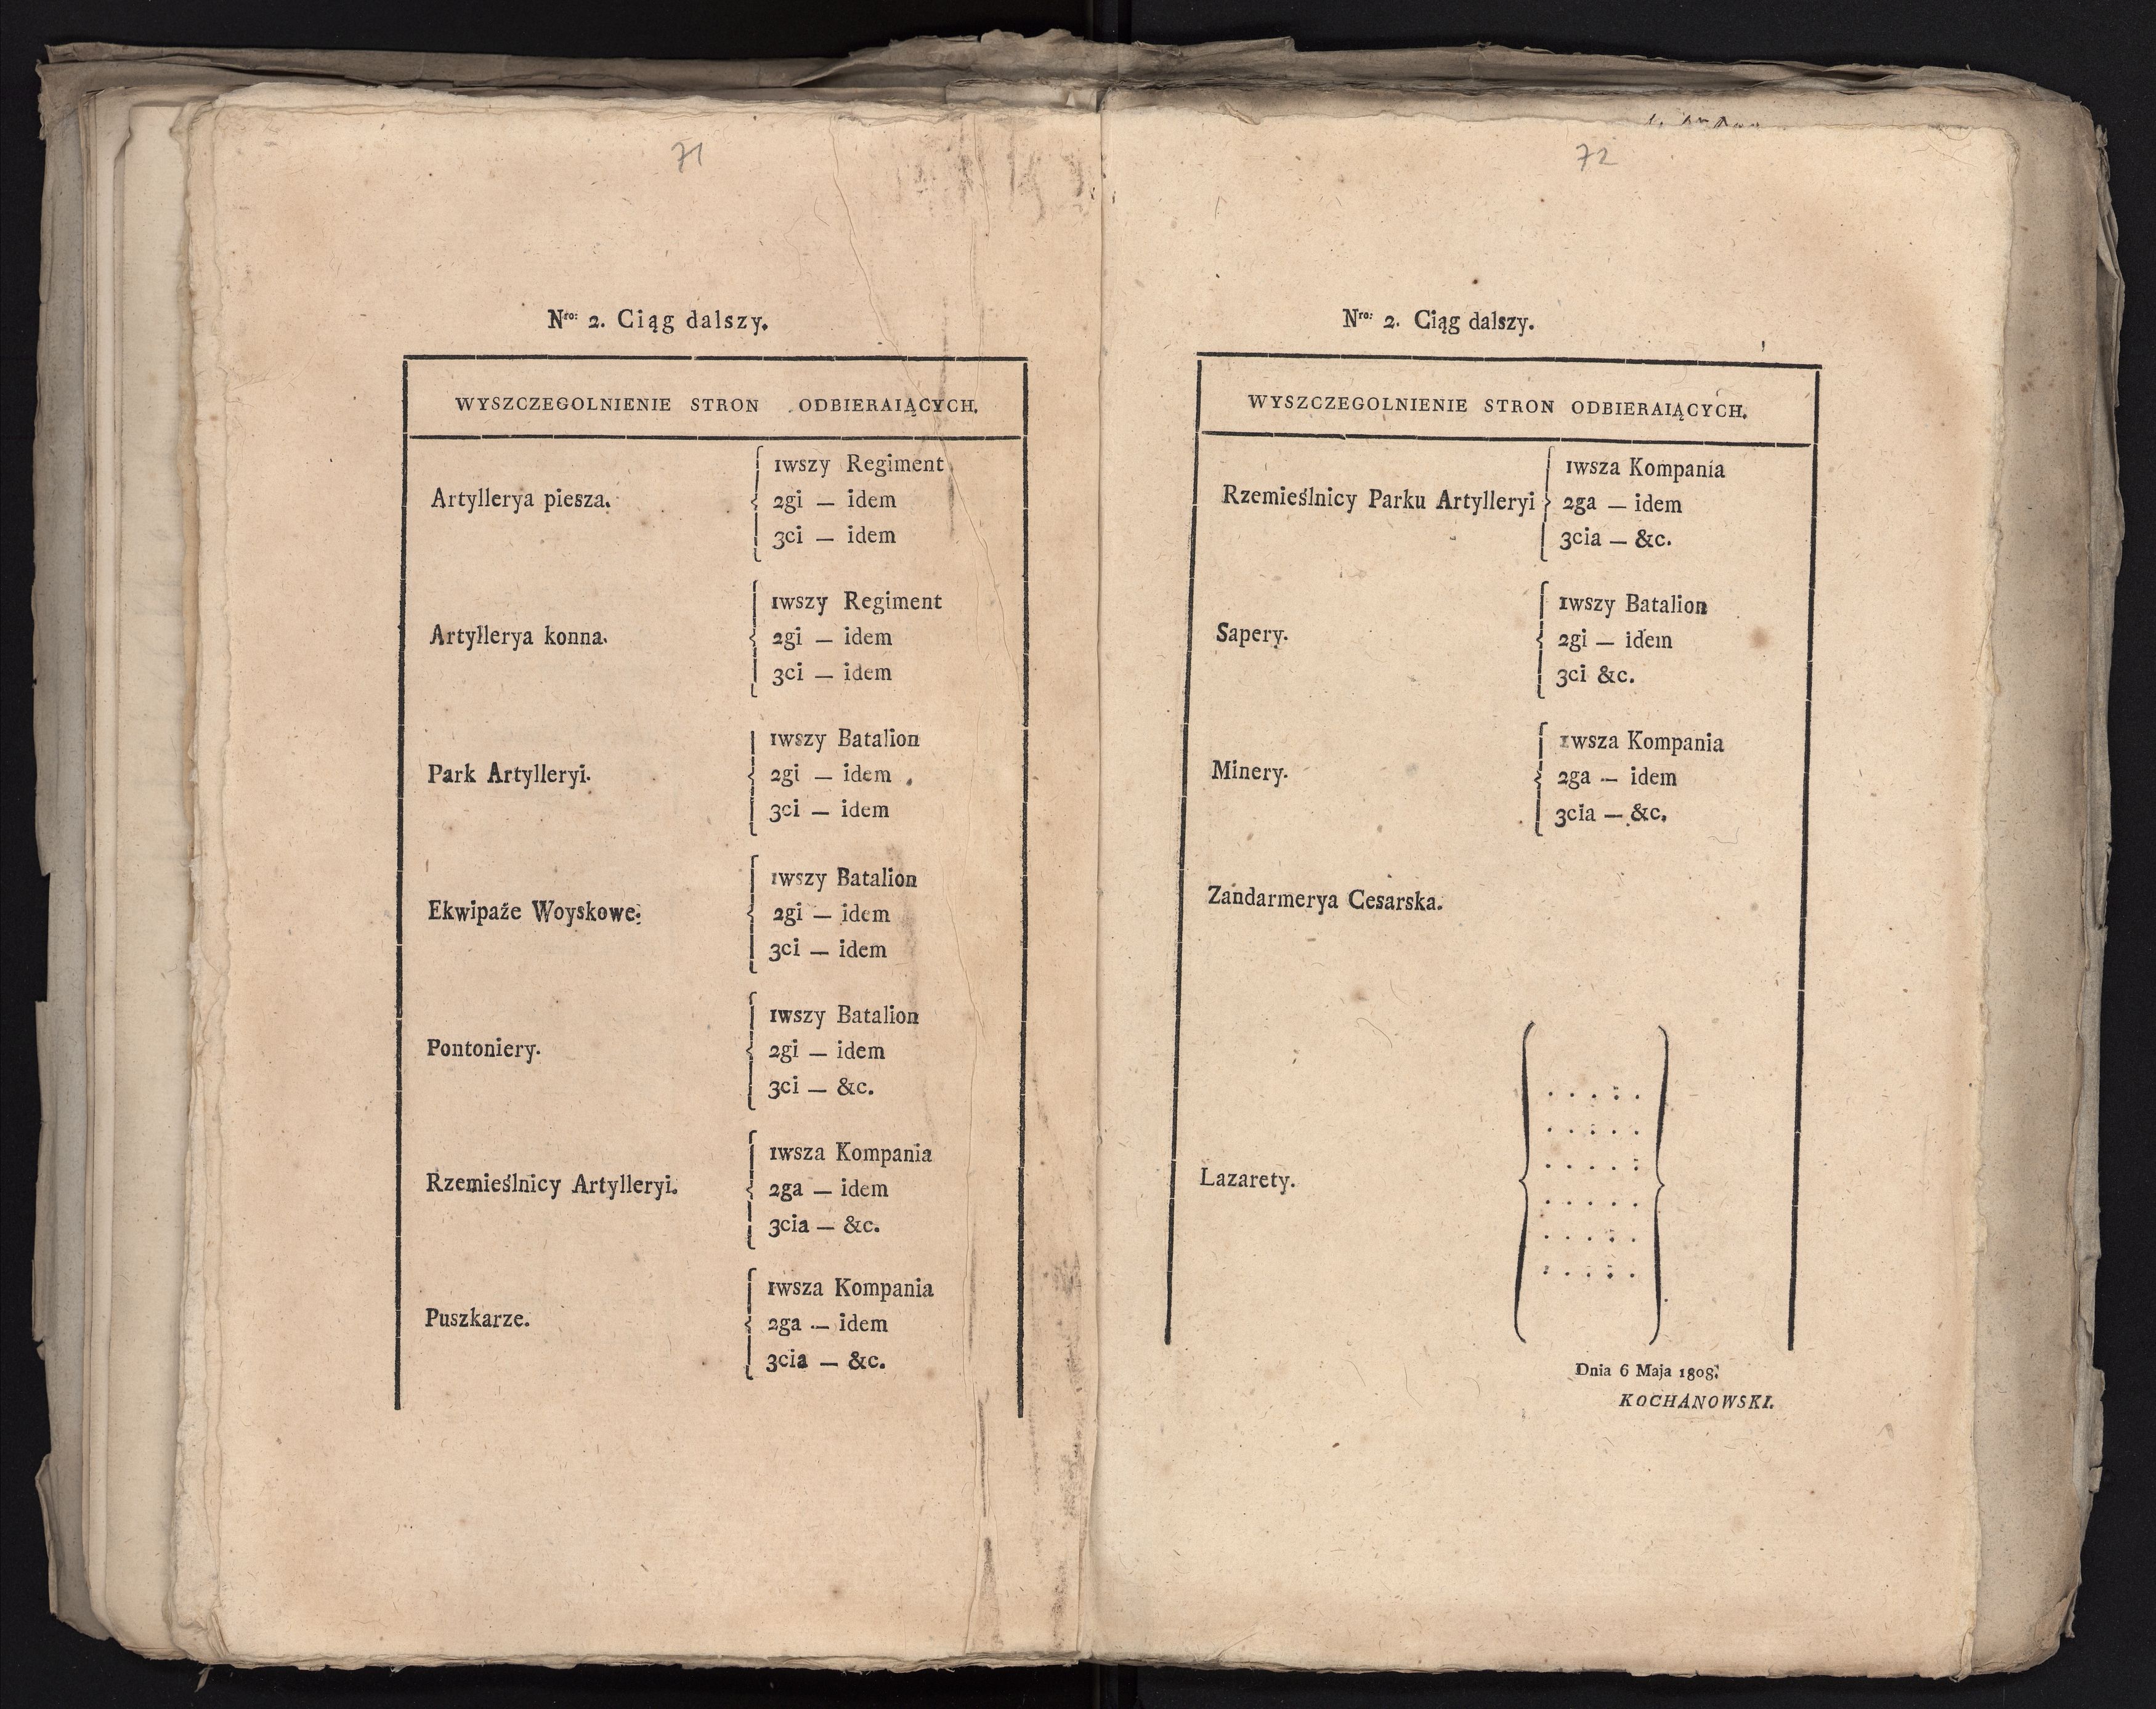 71
Nro: 2. Ciąg dalszy.
WYSZCZEGOLNIENIE STRON ODBIERAIĄCYCH.
1wszy Regiment
Artyllerya piesza. 2gi — idem
3ci — idem
1wszy Regiment
Artyllerya konna. 2gi — idem
3ci — idem
1wszy Batalion
Park Artylleryi. 2gi — idem
3ci — idem
1wszy Batalion
Ekwipaże Woyskowe: 2gi — idem
3ci — idem
1wszy Batalion
Pontoniery. 2gi — idem
3ci — &c.
1wsza Kompania
Rzemieślnicy Artylleryi. 2ga — idem
3cia — &c.
1wsza Kompania
Puszkarze. 2ga — idem
3cia — &c.
72
Nro: 2. Ciąg dalszy.
WYSZCZEGOLNIENIE STRON ODBIERAIĄCYCH.
1wsza Kompania
Rzemieślnicy Parku Artylleryi 2ga — idem
3cia — &c.
1wszy Batalion
Sapery. 2gi — idem
3ci &c.
1wsza Kompania
Minery. 2ga — idem
3cia — &c.
Zandarmerya Cesarska.
Lazarety.
Dnia 6 Maja 1808.
KOCHANOWSKI.